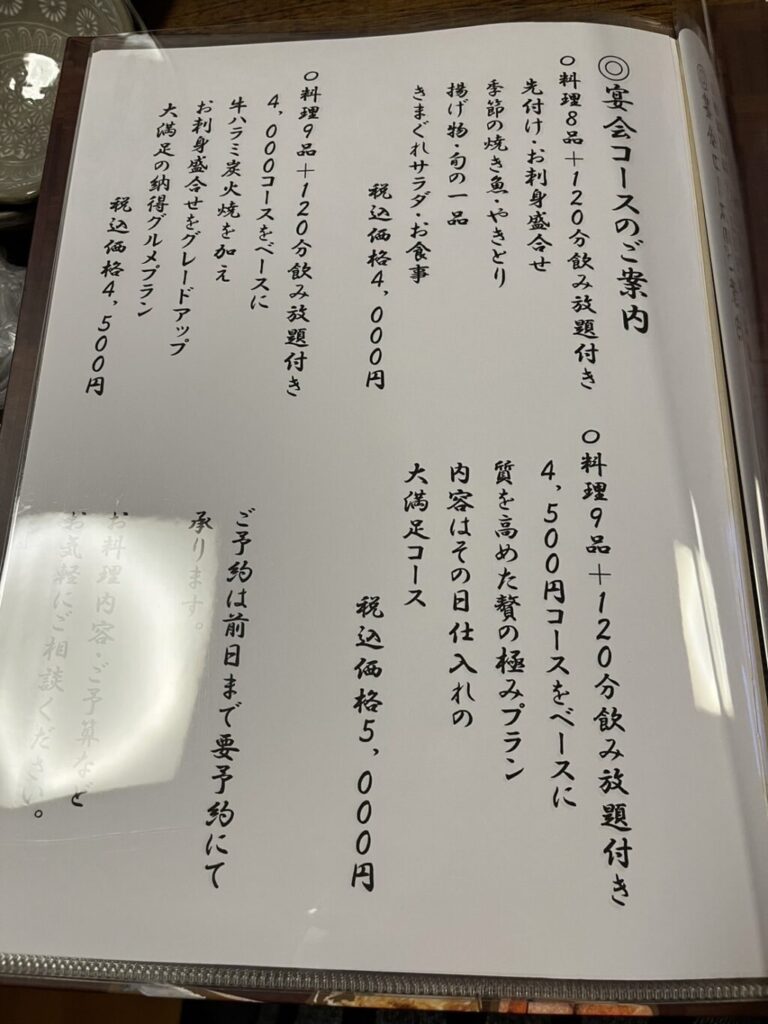 ◎宴会コースのご案内
○料理8品＋120分飲み放題付き
先付け・お刺身盛合せ
季節の焼き魚・やきとり
揚げ物・旬の一品
きまぐれサラダ・お食事
税込価格4,000円
○料理9品＋120分飲み放題付き
4,000コースをベースに
牛ハラミ炭火焼を加え
お刺身盛合せをグレードアップ
大満足の納得グルメプラン
税込価格4,500円
○料理9品＋120分飲み放題付き
4,500円コースをベースに
質を高めた贅の極みプラン
内容はその日仕入れの
大満足コース
税込価格5,000円
ご予約は前日まで要予約にて
承ります。
お料理内容・ご予算など
お気軽にご相談ください。